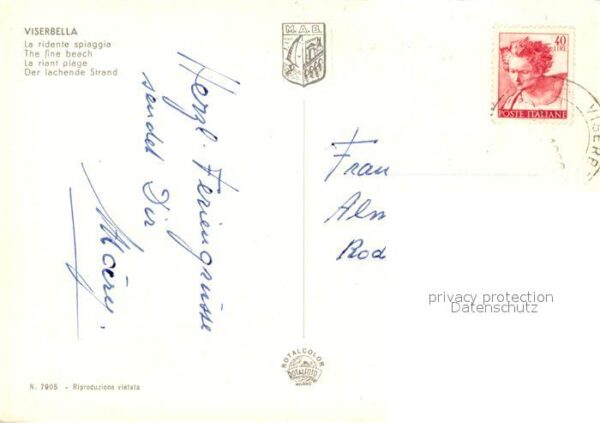 VISERBELLA
La ridente spiaggia
The fine beach
La riant plage
Der lachende Strand
M.A.B.
40
LIRE
POSTE ITALIANE
VISERB
Herzl. Feriengrüsse
sendet Dir
Frau
Alm
Rod
privacy protection
Datenschutz
ROTALCOLOR
ROTALFOTO
MILANO
N. 7905 - Riproduzione vietata